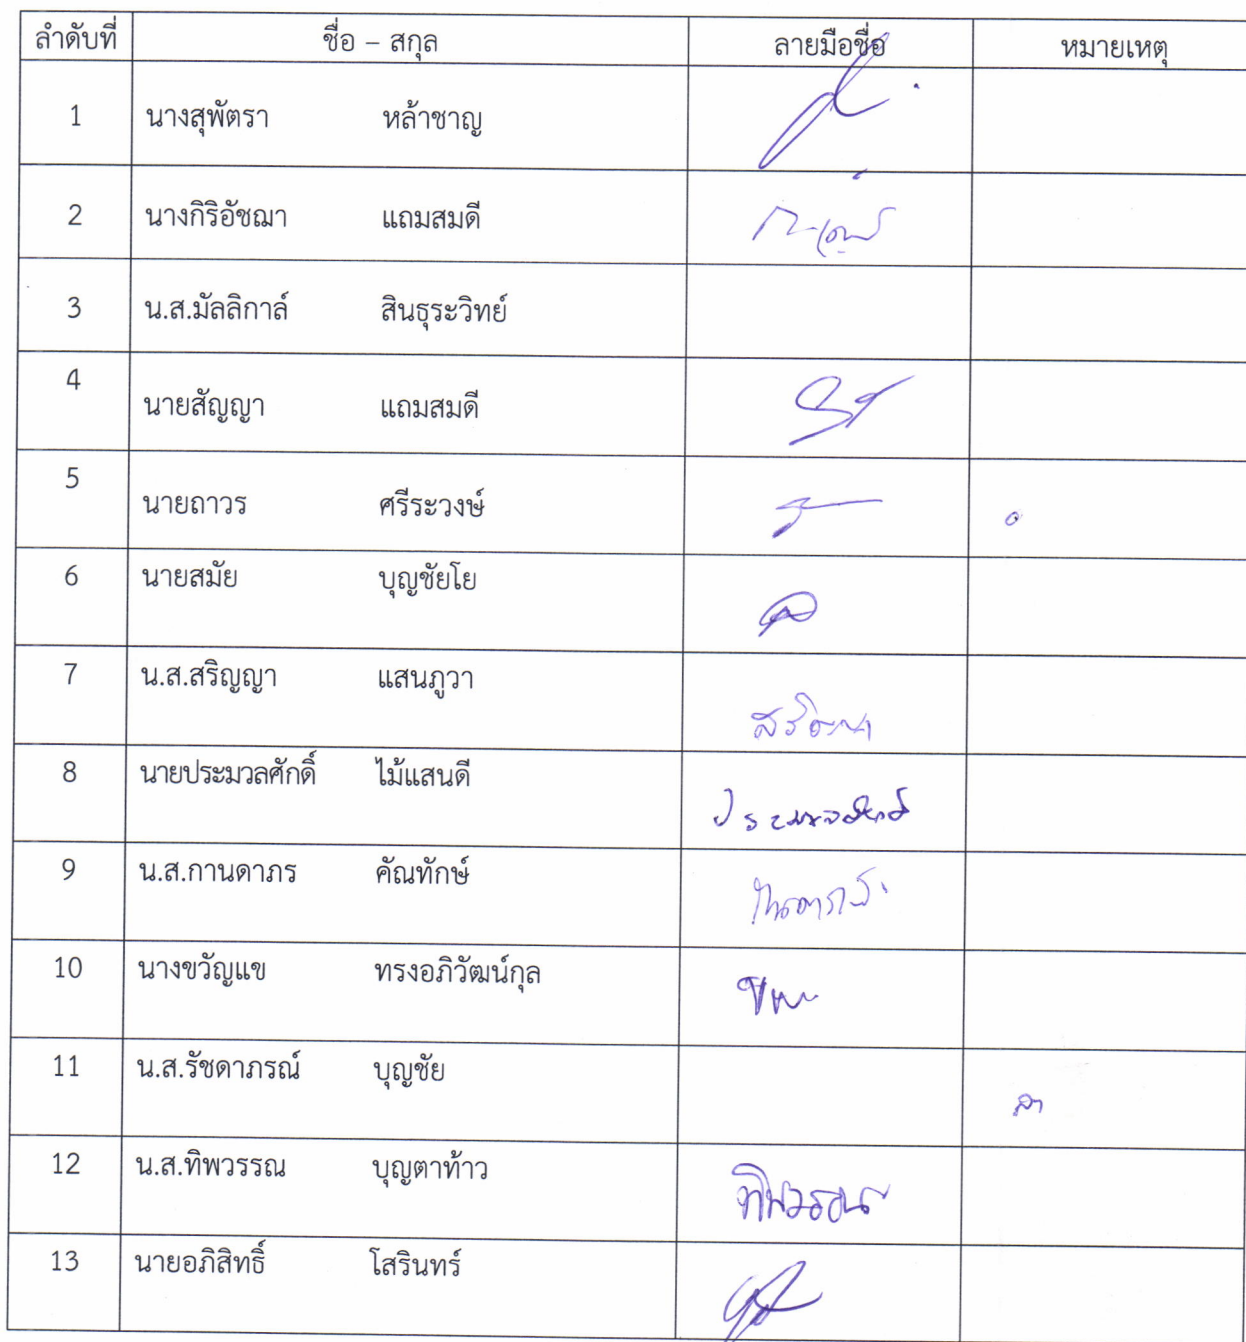 ลำดับที่ ชื่อ – สกุล ลายมือชื่อ หมายเหตุ
1 นางสุพัตรา หล้าชาญ
2 นางกิริอัชฌา แถมสมดี
3 น.ส.มัลลิกาล์ สินธุระวิทย์
4 นายสัญญา แถมสมดี
5 นายถาวร ศรีระวงษ์
6 นายสมัย บุญชัยโย
7 น.ส.สริญญา แสนภูวา
8 นายประมวลศักดิ์ ไม้แสนดี
9 น.ส.กานดาภร คัณทักษ์
10 นางขวัญแข ทรงอภิวัฒน์กุล
11 น.ส.รัชดาภรณ์ บุญชัย ลา
12 น.ส.ทิพวรรณ บุญตาท้าว ทิพวรรณ
13 นายอภิสิทธิ์ โสรินทร์